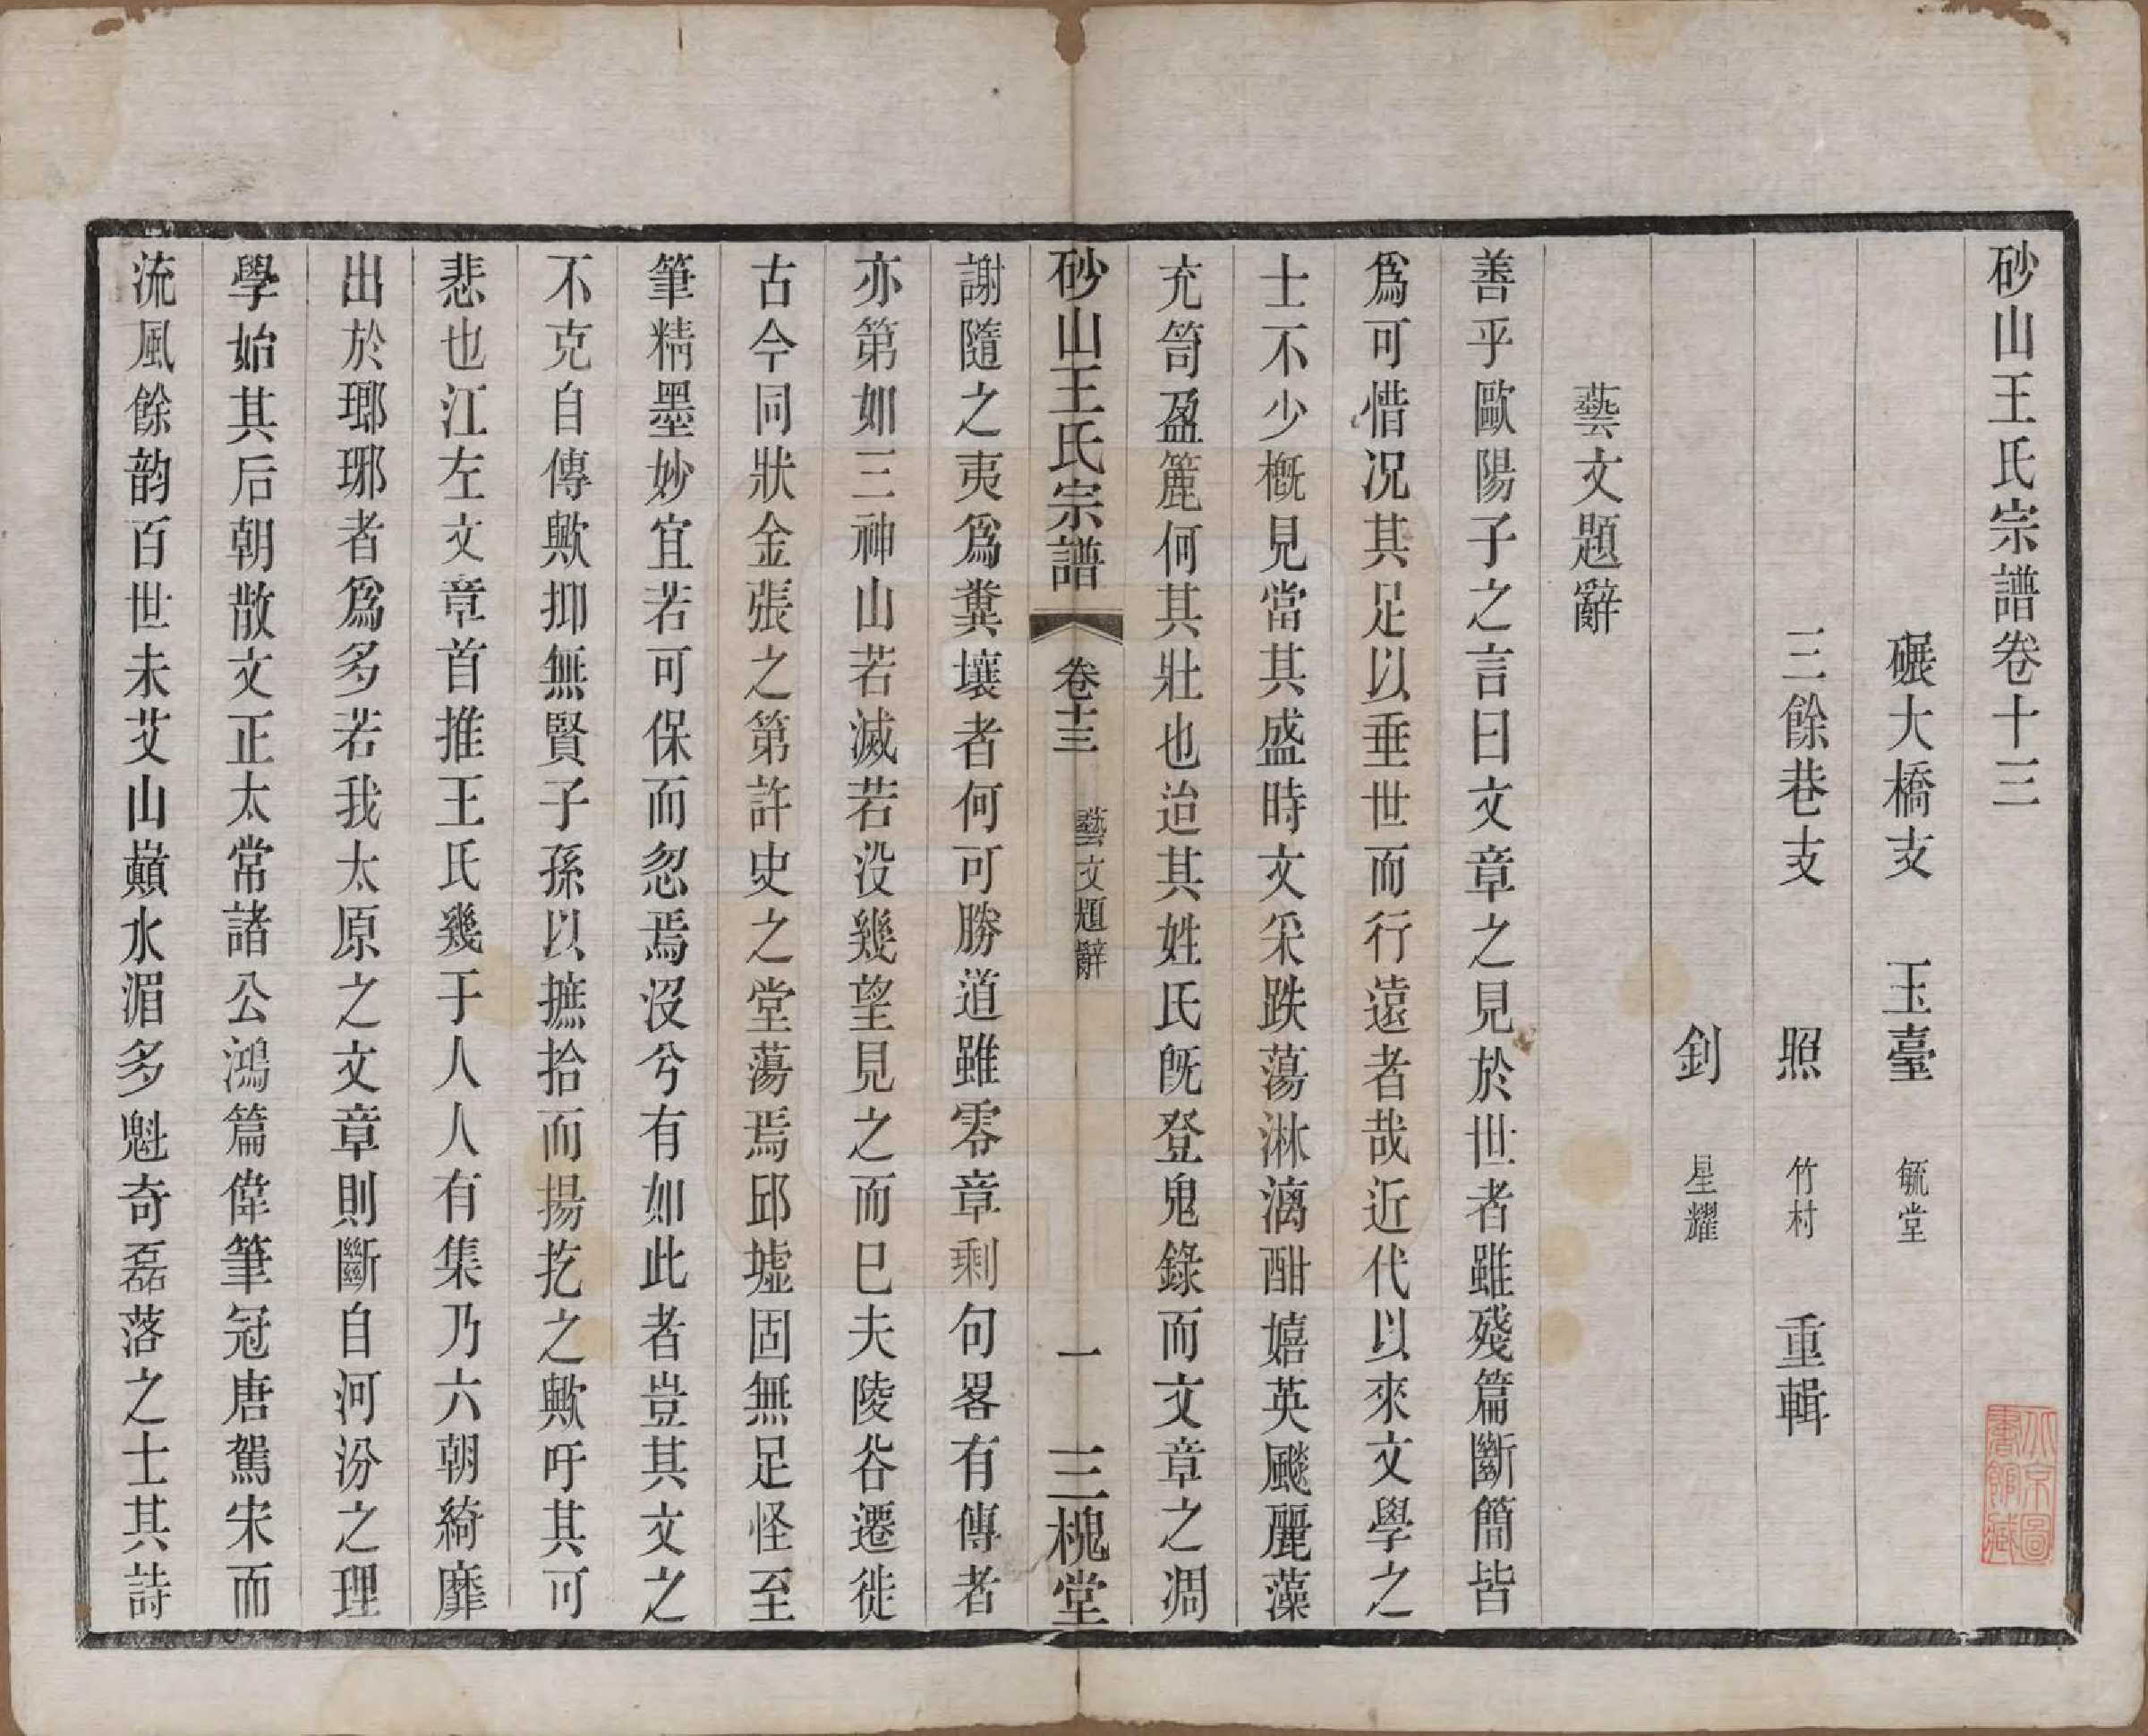 砂山王氏宗譜卷十三
碾大橋支　玉臺　毓堂
三餘巷支　照　竹村　重輯
釗　星耀
藝文題辭
善乎歐陽子之言曰文章之見於世者雖殘篇斷簡皆
爲可惜况其足以垂世而行遠者哉近代以來文學之
士不少槪見當其盛時文采跌蕩淋漓酣嬉英飈麗藻
充笥盈簏何其壯也迨其姓氏旣登鬼錄而文章之凋
砂山王氏宗譜　卷十三　藝文題辭　一　三槐堂
謝隨之夷爲糞壤者何可勝道雖零章剩句畧有傳者
亦第如三神山若滅若没幾望見之而巳夫陵谷遷徙
古今同狀金張之第許史之堂蕩焉邱墟固無足怪至
筆精墨妙宜若可保而忽焉没兮有如此者豈其文之
不克自傳歟抑無賢子孫以摭拾而揚扢之歟吁其可
悲也江左文章首推王氏幾于人人有集乃六朝綺靡
出於瑯琊者爲多若我太原之文章則斷自河汾之理
學始其后朝散文正太常諸公鴻篇偉筆冠唐駕宋而
流風餘韵百世未艾山巔水湄多魁奇磊落之士其詩
北京圖書館藏